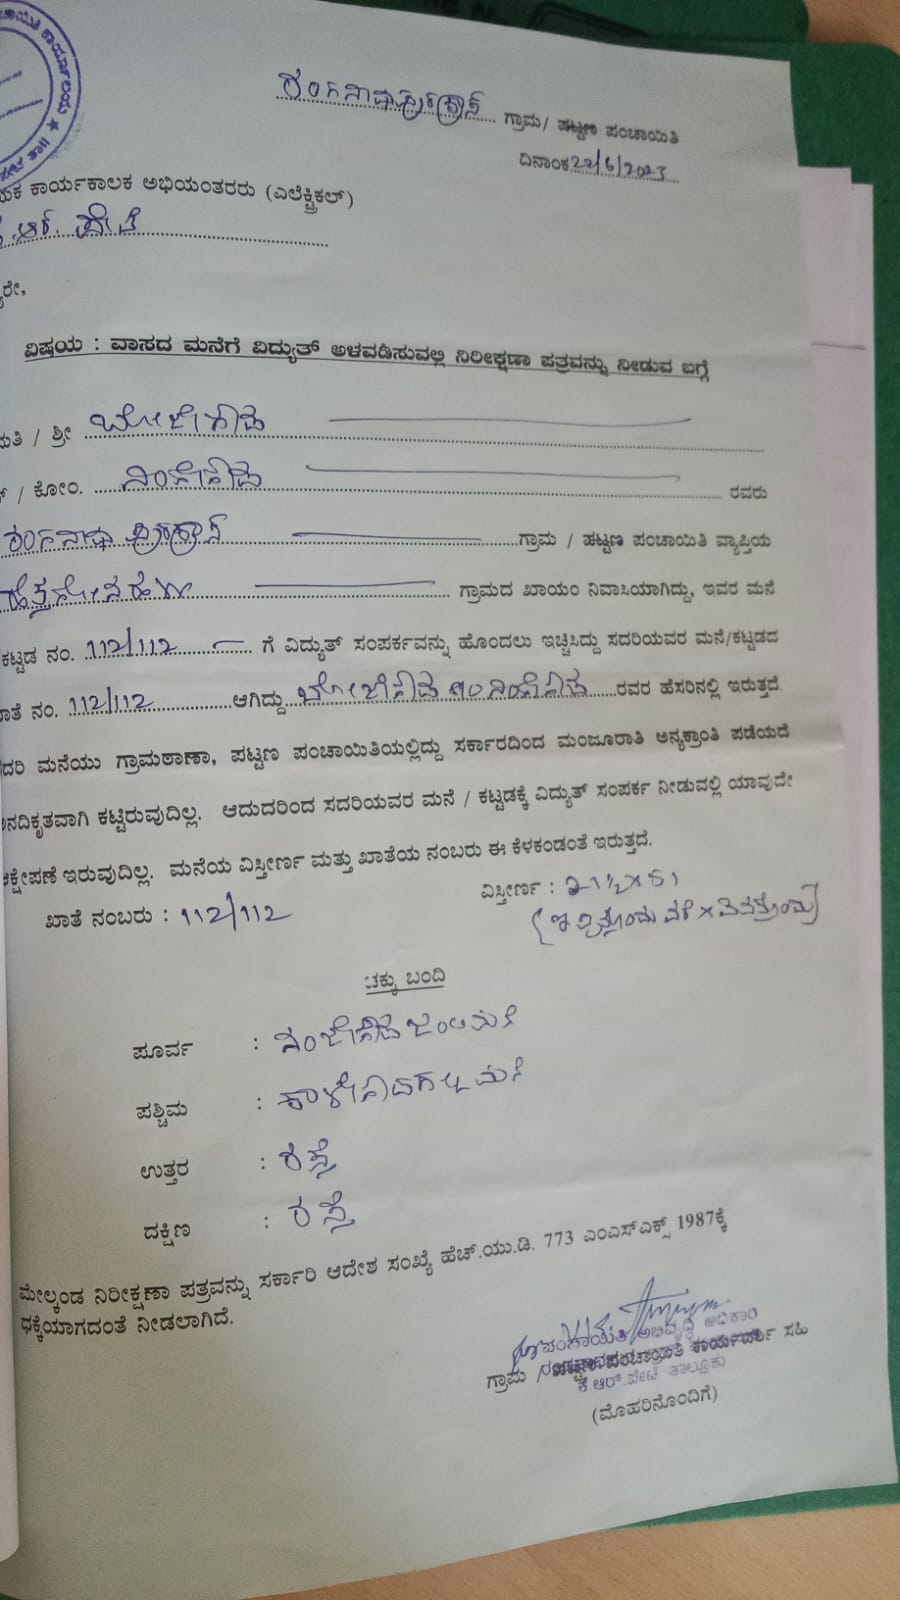 ಪಂಚಾಯಿತಿ ಕಾರ್ಯಾಲಯ ★
ಗ್ರಾಮ/ ಪಟ್ಟಣ ಪಂಚಾಯಿತಿ
ದಿನಾಂಕ 22/6/2023
ಕಾರ್ಯಕಾಲಕ ಅಭಿಯಂತರರು (ಎಲೆಕ್ಟ್ರಿಕಲ್)
ಆರ್. ಪೇಟೆ
ವಿಷಯ : ವಾಸದ ಮನೆಗೆ ವಿದ್ಯುತ್ ಅಳವಡಿಸುವಲ್ಲಿ ನಿರೀಕ್ಷಣಾ ಪತ್ರವನ್ನು ನೀಡುವ ಬಗ್ಗೆ
/ ಶ್ರೀ ಬೋಜೇಗೌಡ
/ ಕೋಂ. ನಂಜೇಗೌಡ ರವರು
ಗ್ರಾಮ / ಪಟ್ಟಣ ಪಂಚಾಯಿತಿ ವ್ಯಾಪ್ತಿಯ
ಗ್ರಾಮದ ಖಾಯಂ ನಿವಾಸಿಯಾಗಿದ್ದು, ಇವರ ಮನೆ
ಕಟ್ಟಡ ನಂ. 112/112 ಗೆ ವಿದ್ಯುತ್ ಸಂಪರ್ಕವನ್ನು ಹೊಂದಲು ಇಚ್ಚಿಸಿದ್ದು ಸದರಿಯವರ ಮನೆ/ಕಟ್ಟಡದ
ನಂ. 112/112 ಆಗಿದ್ದು ಬೋಜೇಗೌಡ ಬಿನ್ ನಂಜೇಗೌಡ ರವರ ಹೆಸರಿನಲ್ಲಿ ಇರುತ್ತದೆ.
ಮನೆಯು ಗ್ರಾಮಠಾಣಾ, ಪಟ್ಟಣ ಪಂಚಾಯಿತಿಯಲ್ಲಿದ್ದು ಸರ್ಕಾರದಿಂದ ಮಂಜೂರಾತಿ ಅನ್ಯಕ್ರಾಂತಿ ಪಡೆಯದೆ
ಅನದಿಕೃತವಾಗಿ ಕಟ್ಟಿರುವುದಿಲ್ಲ. ಆದುದರಿಂದ ಸದರಿಯವರ ಮನೆ / ಕಟ್ಟಡಕ್ಕೆ ವಿದ್ಯುತ್ ಸಂಪರ್ಕ ನೀಡುವಲ್ಲಿ ಯಾವುದೇ
ಆಕ್ಷೇಪಣೆ ಇರುವುದಿಲ್ಲ. ಮನೆಯ ವಿಸ್ತೀರ್ಣ ಮತ್ತು ಖಾತೆಯ ನಂಬರು ಈ ಕೆಳಕಂಡಂತೆ ಇರುತ್ತದೆ.
ಖಾತೆ ನಂಬರು : 112/112 ವಿಸ್ತೀರ್ಣ : 21½ x 51
(ಇಪ್ಪತ್ತೊಂದುವರೆ x ಐವತ್ತೊಂದು)
ಚಕ್ಕು ಬಂದಿ
ಪೂರ್ವ : ನಂಜೇಗೌಡ ಮನೆ
ಪಶ್ಚಿಮ : ಕಾಳೇಗೌಡರ ಮನೆ
ಉತ್ತರ : ರಸ್ತೆ
ದಕ್ಷಿಣ : ರಸ್ತೆ
ಮೇಲ್ಕಂಡ ನಿರೀಕ್ಷಣಾ ಪತ್ರವನ್ನು ಸರ್ಕಾರಿ ಆದೇಶ ಸಂಖ್ಯೆ ಹೆಚ್.ಯು.ಡಿ. 773 ಎಂಎಸ್‌ಎಕ್ಸ್ 1987ಕ್ಕೆ
ಧಕ್ಕೆಯಾಗದಂತೆ ನೀಡಲಾಗಿದೆ.
ಪಂಚಾಯತಿ ಅಭಿವೃದ್ಧಿ ಅಧಿಕಾರಿ
ಗ್ರಾಮ / ಪಟ್ಟಣ ಪಂಚಾಯತಿ ಕಾರ್ಯದರ್ಶಿ ಸಹಿ
ಕೆ ಆರ್.ಪೇಟೆ ತಾಲ್ಲೂಕು
(ಮೊಹರಿನೊಂದಿಗೆ)